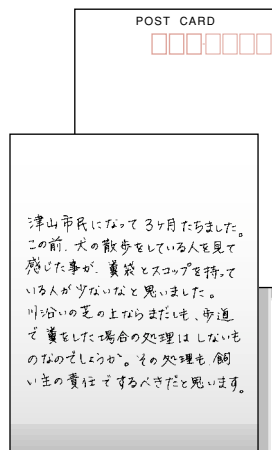 POST CARD
津山市民になって3ヶ月たちました。
この前、犬の散歩をしている人を見て
感じた事が、糞袋とスコップを持って
いる人が少ないなと思いました。
川沿いの芝の上ならまだしも、歩道
で糞をした場合の処理はしないも
のなのでしょうか。その処理も、飼
い主の責任でするべきだと思います。